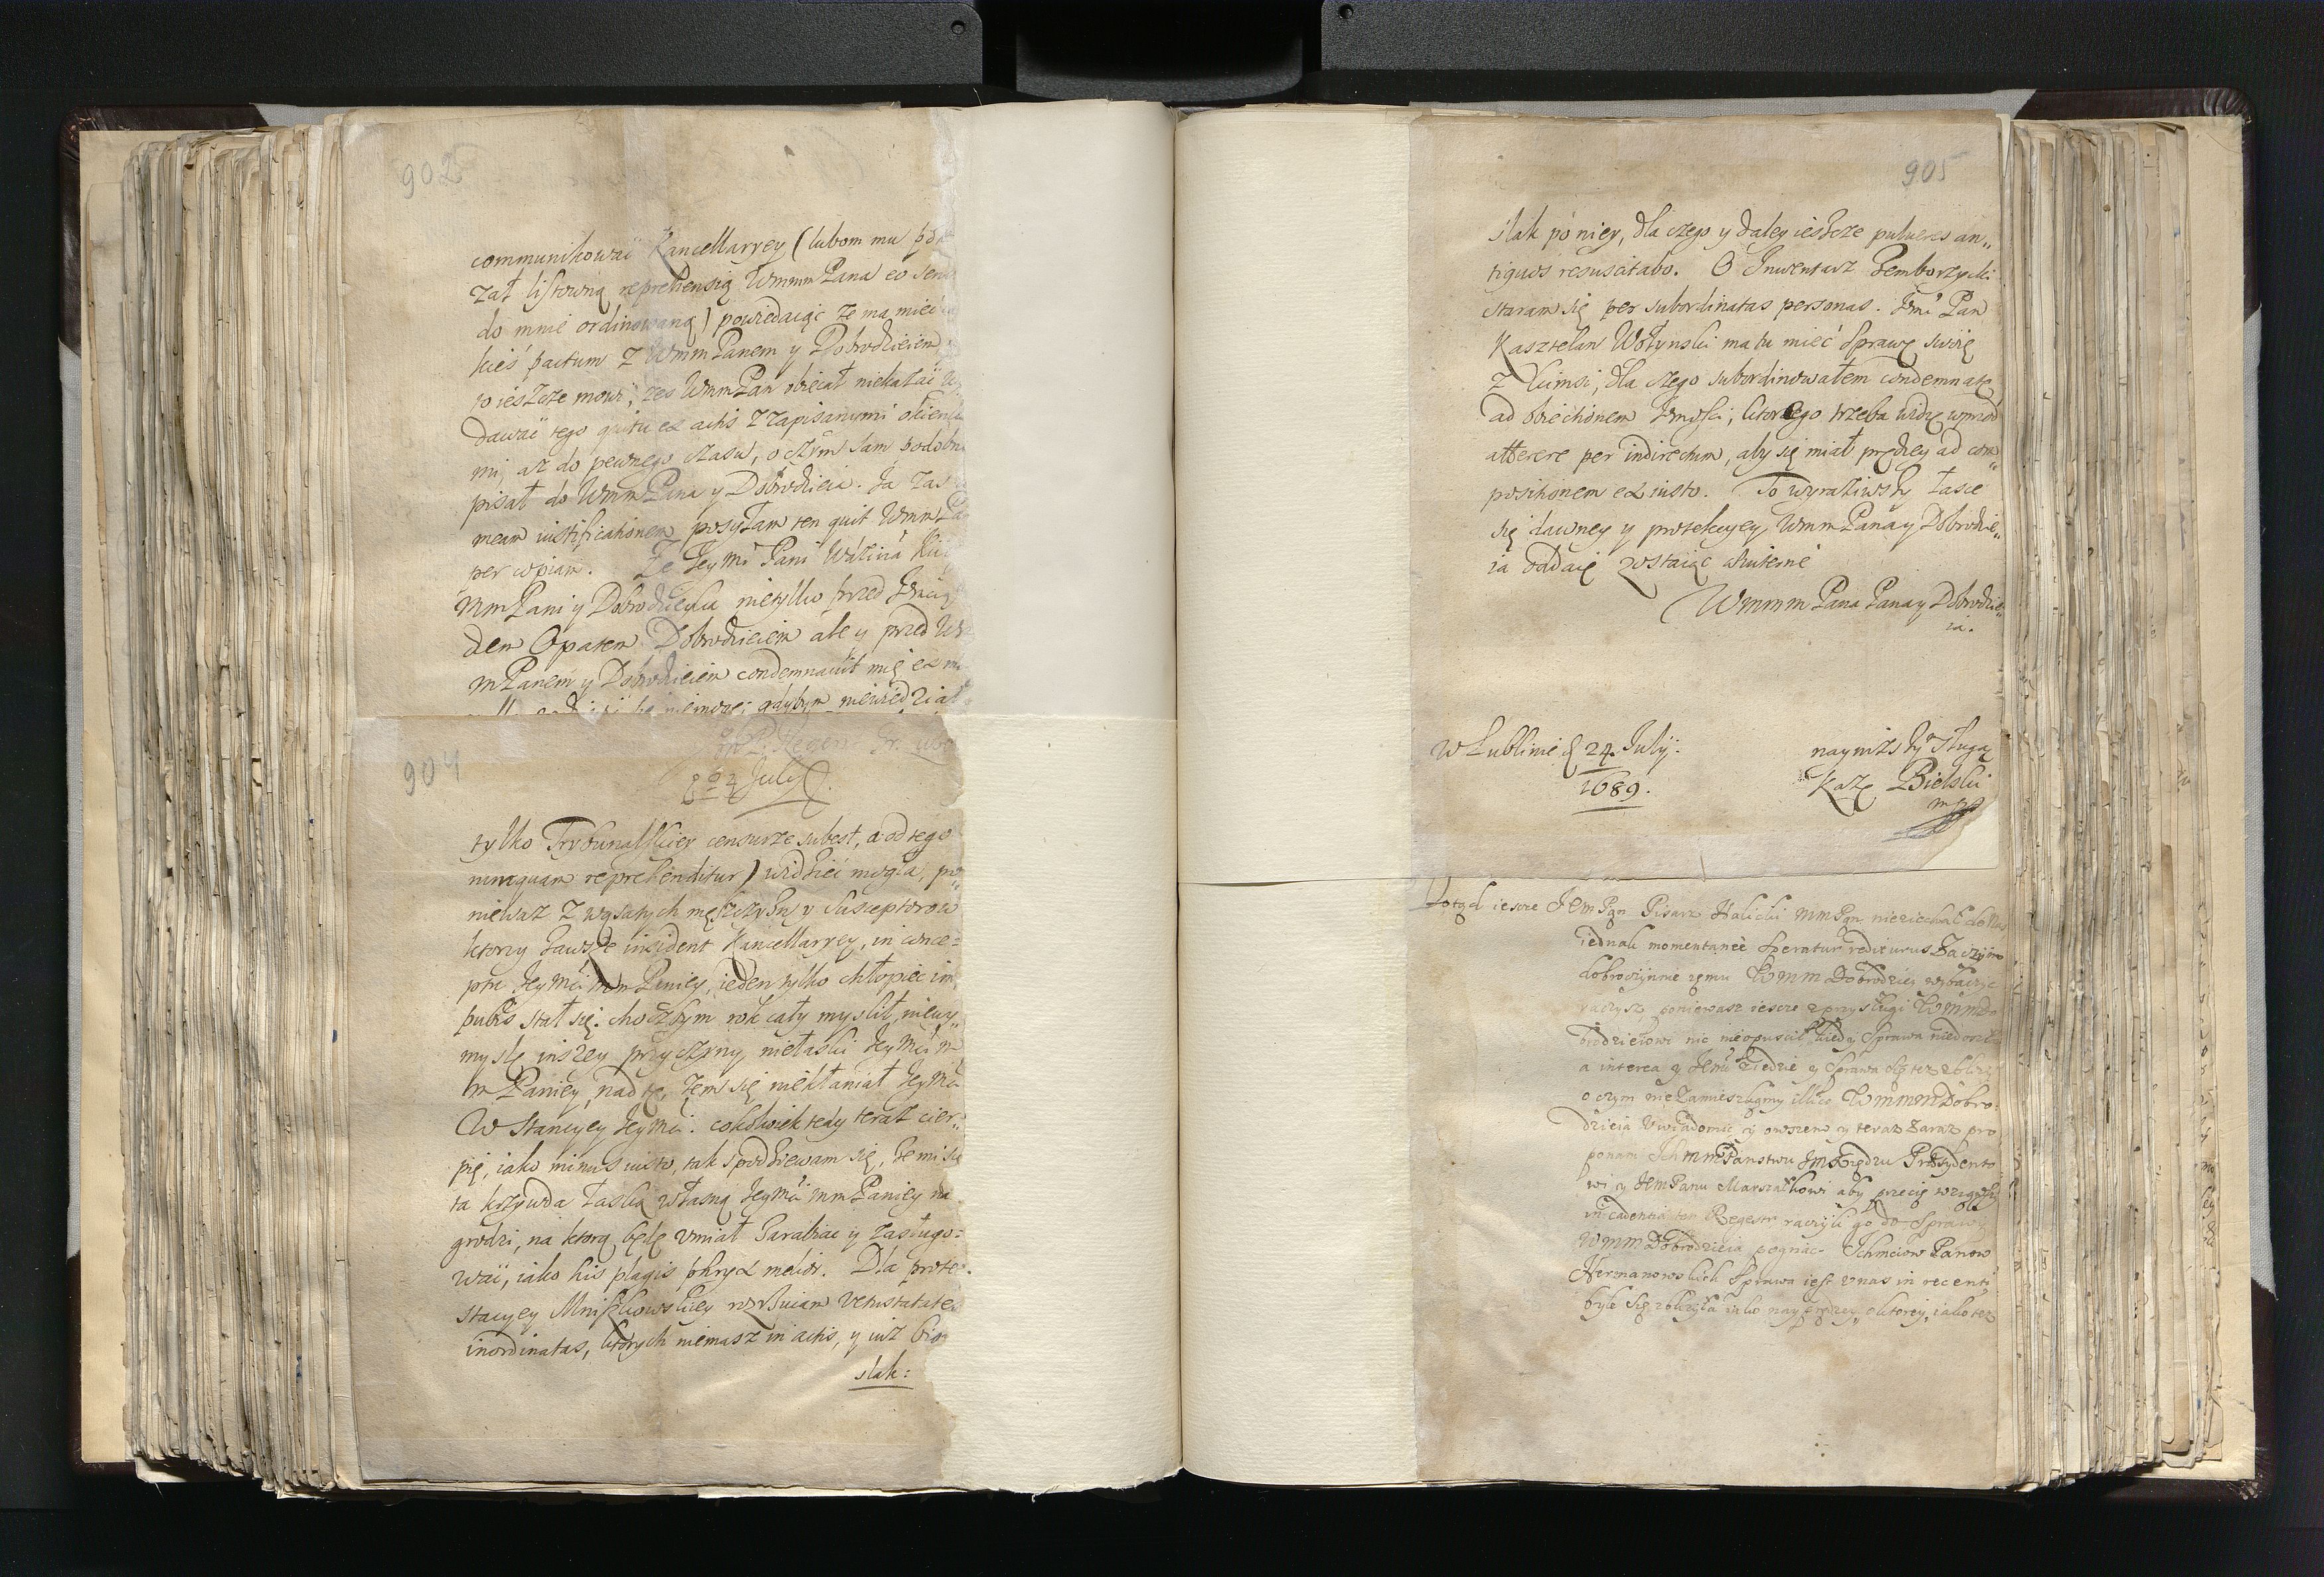 902
communikować Kancellaryey (lubom mu
zał listowną reprehensią WmmmPana eo
do mnie ordinowaną) powiedaiąc że ma mieć
kieś pactum z WmmPanem y Dobrodzieiem
ieszcze mowi, żeś WmmPan obiecał niekazać
dawać tego quitu ex actis z zapisanymi
mi, aż do pewnego czasu, o czym sam podobno
pisał do WmmPana y Dobrodzieia. Ja zas
meam iustificationem posyłam ten quit Wmm
per copiam. Że Jeymć Pani
MmPani y Dobrodzieyka nietylko przed
dzem Opatem Dobrodzieiem ale y przed
mPanem y Dobrodzieiem condemnavit mię ex
niemoże; gdybym niewiedział
904
24 July
tylko Trybunalskiey censurze subest, a od tego
nunquam reprehenditur) widzieć mogła, po„
niewaz z wąsatych męszczyzn y Susceptorow
ktorzy zawsze insident Kancellaryey, in conce=
ptu Jeymći mmPaniey, ieden tylko chłopiec im
pubes stał się. choćbym rok cały myslił, niewy„
myslę inszey przyczyny niełaski Jeymći m
m Paniey, nad tę, żem się niekłaniał Jeymći
W Stancyey Jeymći. cokolwiek tedy teraz cier„
pię, iako minus iusto, tak spodziewam się, że mi się
ta krzywda łaską własną Jeymći mmPaniey na
grodzi, na ktorą będę vmiał zarabiac y zasługo=
wać, iako his plagis phryx melior. Dla prote„
stacyey Mniszkowskiey rozrzucam vetustates
inordinatas, ktorych niemasz in actis, y iuż
slak:
905
slak po niey, dla czego y daley ieszcze pulveres an„
tiquos resuscitabo. O Inwentarz Gemborzycki
staram się per subordinatas personas. Jmć Pan
Kasztelan Wołynski ma tu mieć Sprawę swoię
z kimsi, dla czego subordinowałem condemnatę
ad obiectionem Jmości, ktorego trzeba widzę wprzod
atterere per indirectum, aby się miał prędzey ad com„
positionem ex iusto. To wyraziwszy łasce
się dawney y protekcyey WmmPana y Dobrodzie„
ia oddaię zostaiąc
WmmmPana Pana y Dobrodzie„
ia.
w Lublinie d 24. July:
1689.
nayniższy Sługa
Kaz Bielski
mp
Dotąd iescze JEmPan Pisarz Halicki mmPan nieziechał do nas
iednak momentaneè speratur rediturus
dobroczynne iemu Wmm Dobrodziey wybaczyć
raczysz poniewasz iescze z przysługi WmmDo
brodzieiowi nic nieopuscił kiedy Sprawa niedoszła
a interea y Jemć ziedzie y Sprawa się tez zbliży
o czym niezamieszkamy illico WmmmDobro„
dzieia vwiadomic y owszem y teraz zaraz pro
ponam Ichmm Panstwu Jms Xiędzu Prezydento
wi y JemPanu Marszałkowi aby przecię wziąwszy
in cadentia ten Regestr raczyli go do Sprawy
WmmDobrodzieia pognac. Ichmciow Panow
Hermanowskich Sprawa iest v nas in recenti
byle się zbliżyła iako nayprędzey, o ktorey, iako tez